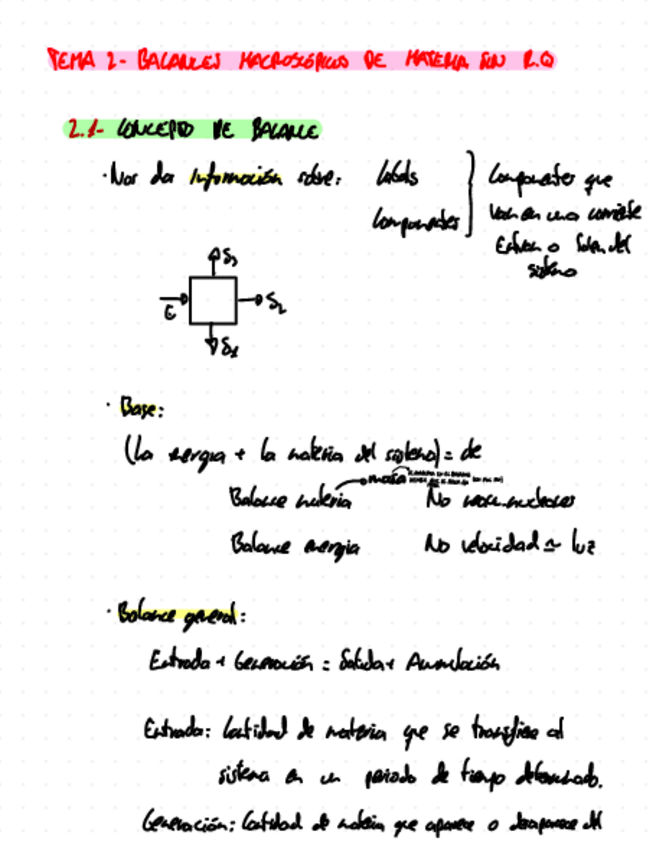 TEMA 2- BALANCES MACROSCÓPICOS DE MATERIA SIN R.Q
2.1- CONCEPTO DE BALANCE
· Nos da información sobre:
Componentes
Componentes que
van en una corriente
Entran o salen del
sistema
S3
E
S2
S1
· Base:
(La energia + la materia del sistema) = cte
masa
Balance materia No reacc. nucleares
Balance energia No velocidad ≃ luz
· Balance general:
Entrada + Generación = Salida + Acumulación
Entrada: Cantidad de materia que se transfiere al
sistema en un periodo de tiempo determinado.
Generación: Cantidad de materia que aparece o desaparece del